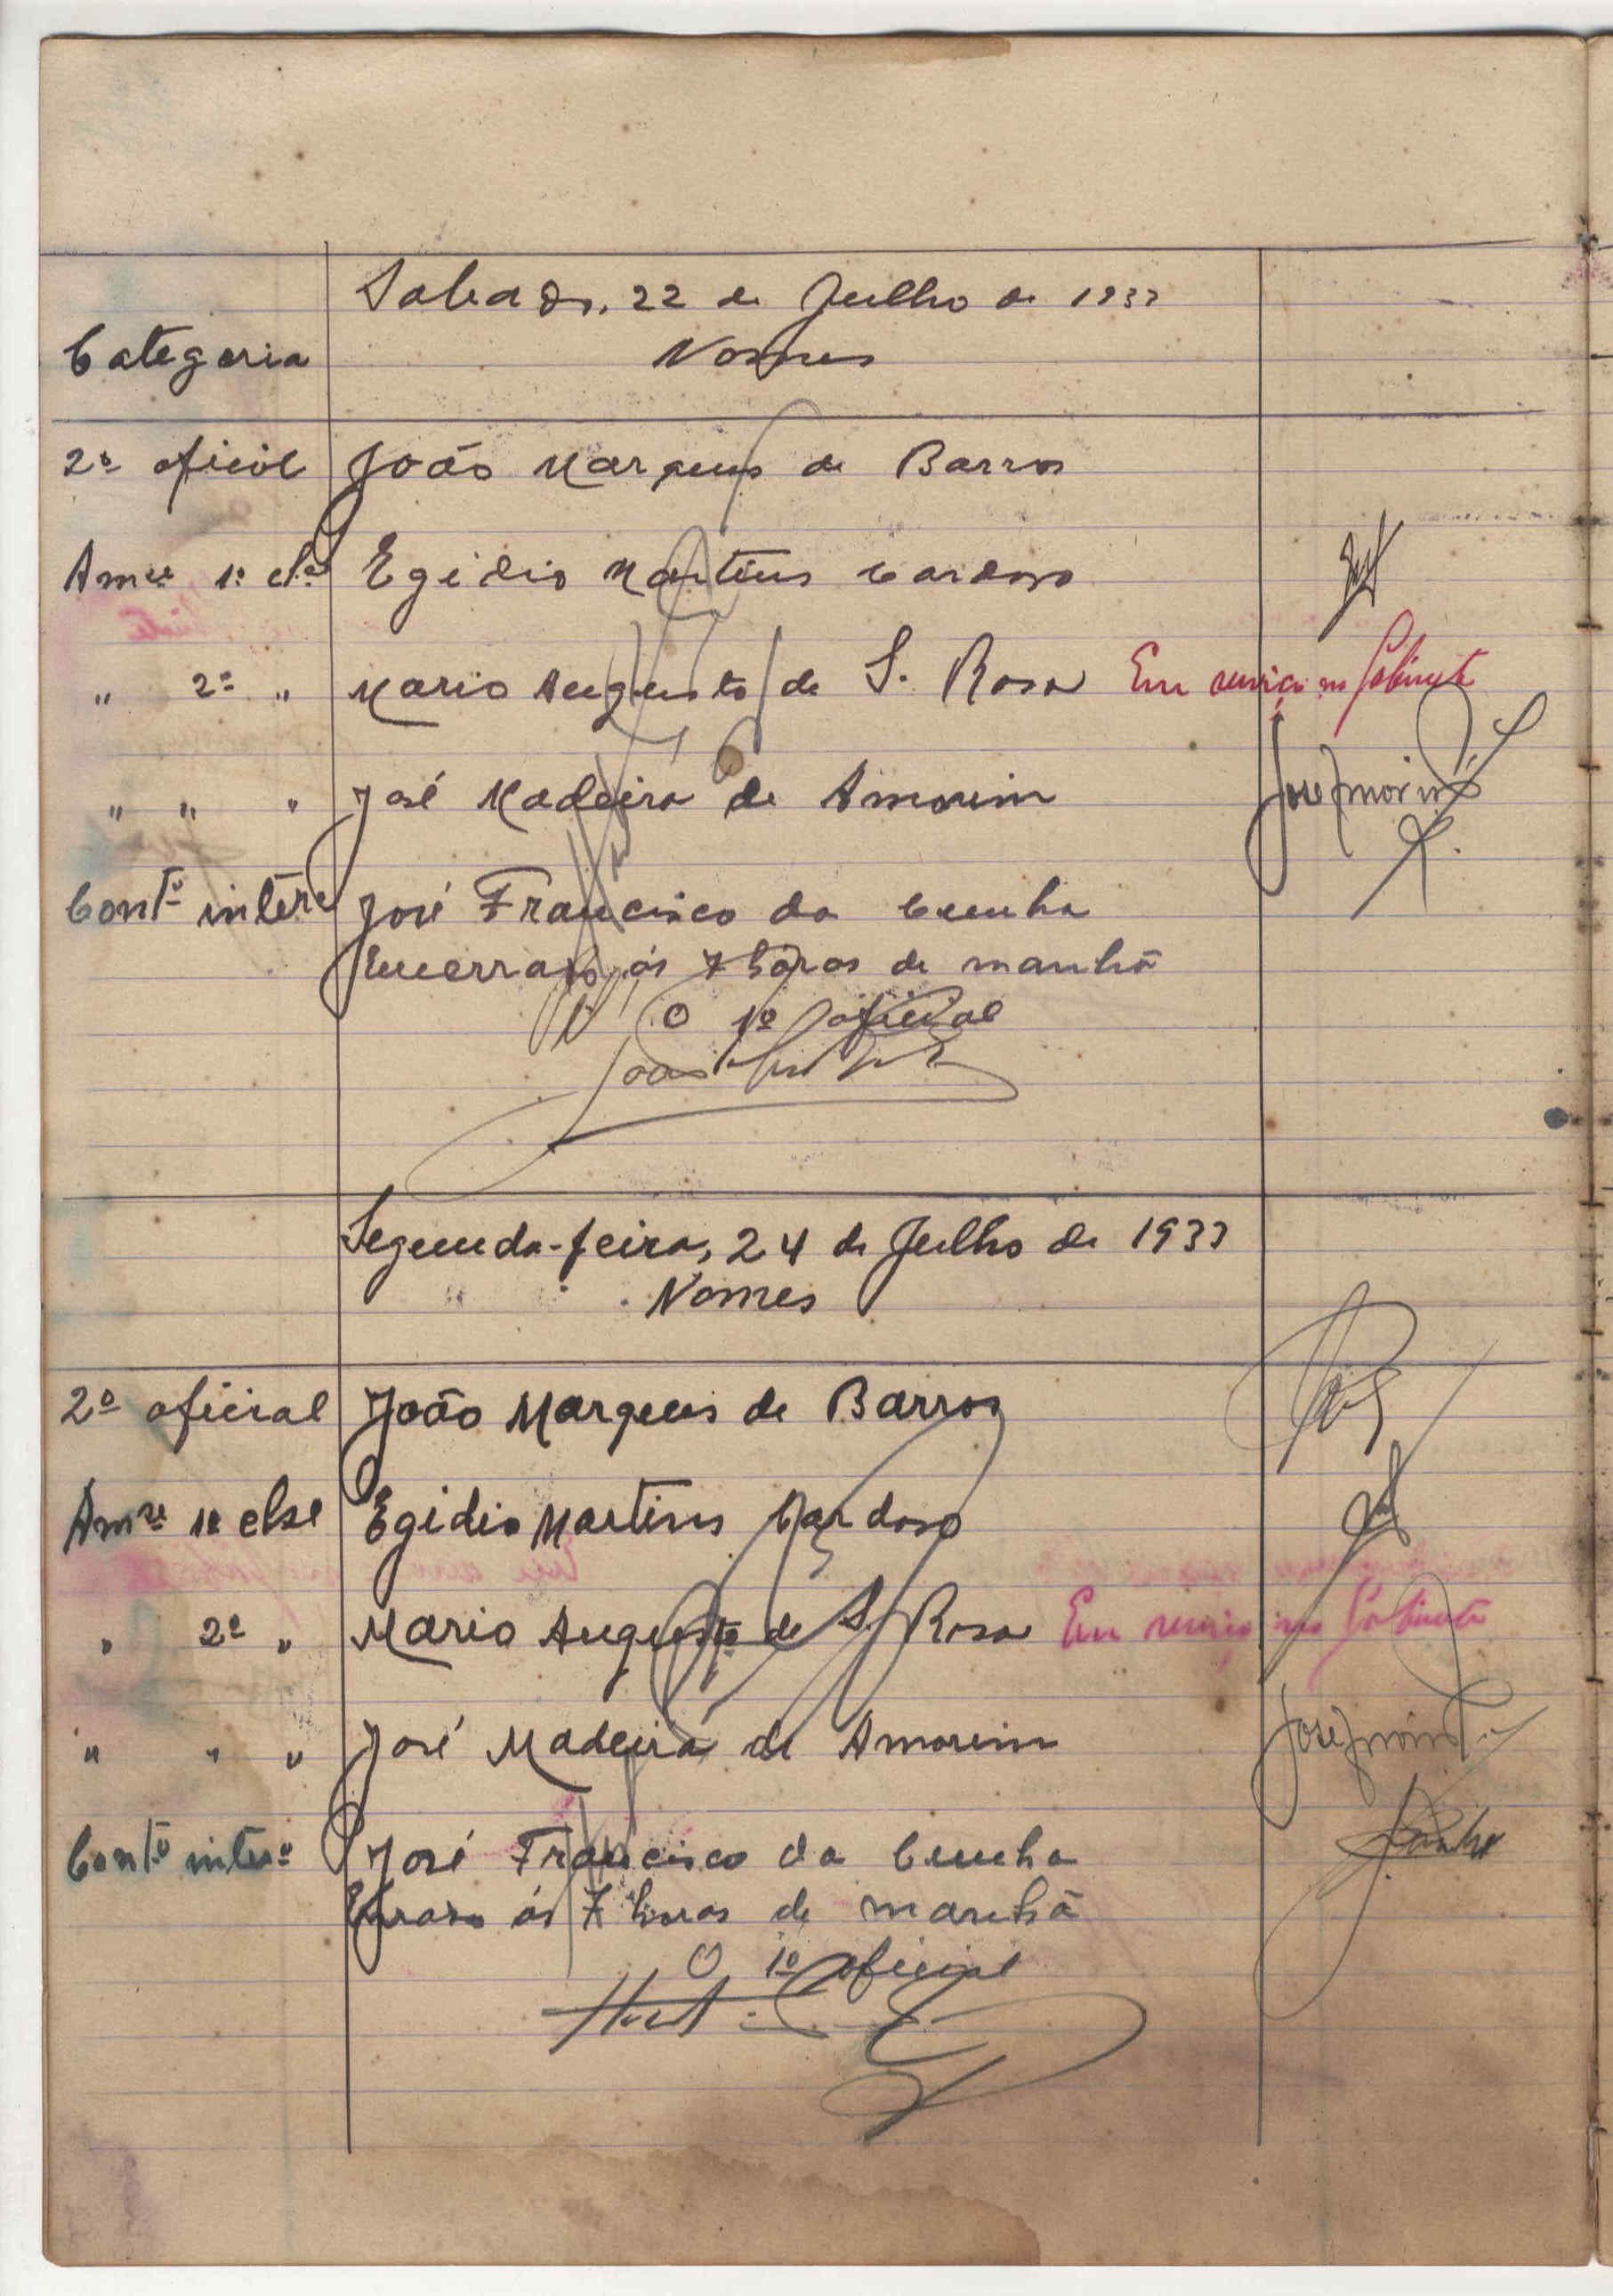 Sabado, 22 de Julho de 1933
Categoria Nomes
2º oficial João Marques de Barros
Amse 1ª clse Egidio Martins Cardoso
" 2ª " Mario Augusto de S. Rosa Em serviço no Gabinete
" " " José Madeira de Amorim José Amorim
Contº interº José Francisco da Cunha
Encerrado ás 7 horas de manhã
O 1º oficial
Segunda-feira, 24 de Julho de 1933
Nomes
2º oficial João Marques de Barros
Amse 1ª clse Egidio Martins Cardoso
" 2ª " Mario Augusto de S. Rosa Em serviço no Gabinete
" " " José Madeira de Amorim José Amorim
Contº interº José Francisco da Cunha Cunha
ás 7 horas de manhã
O 1º oficial